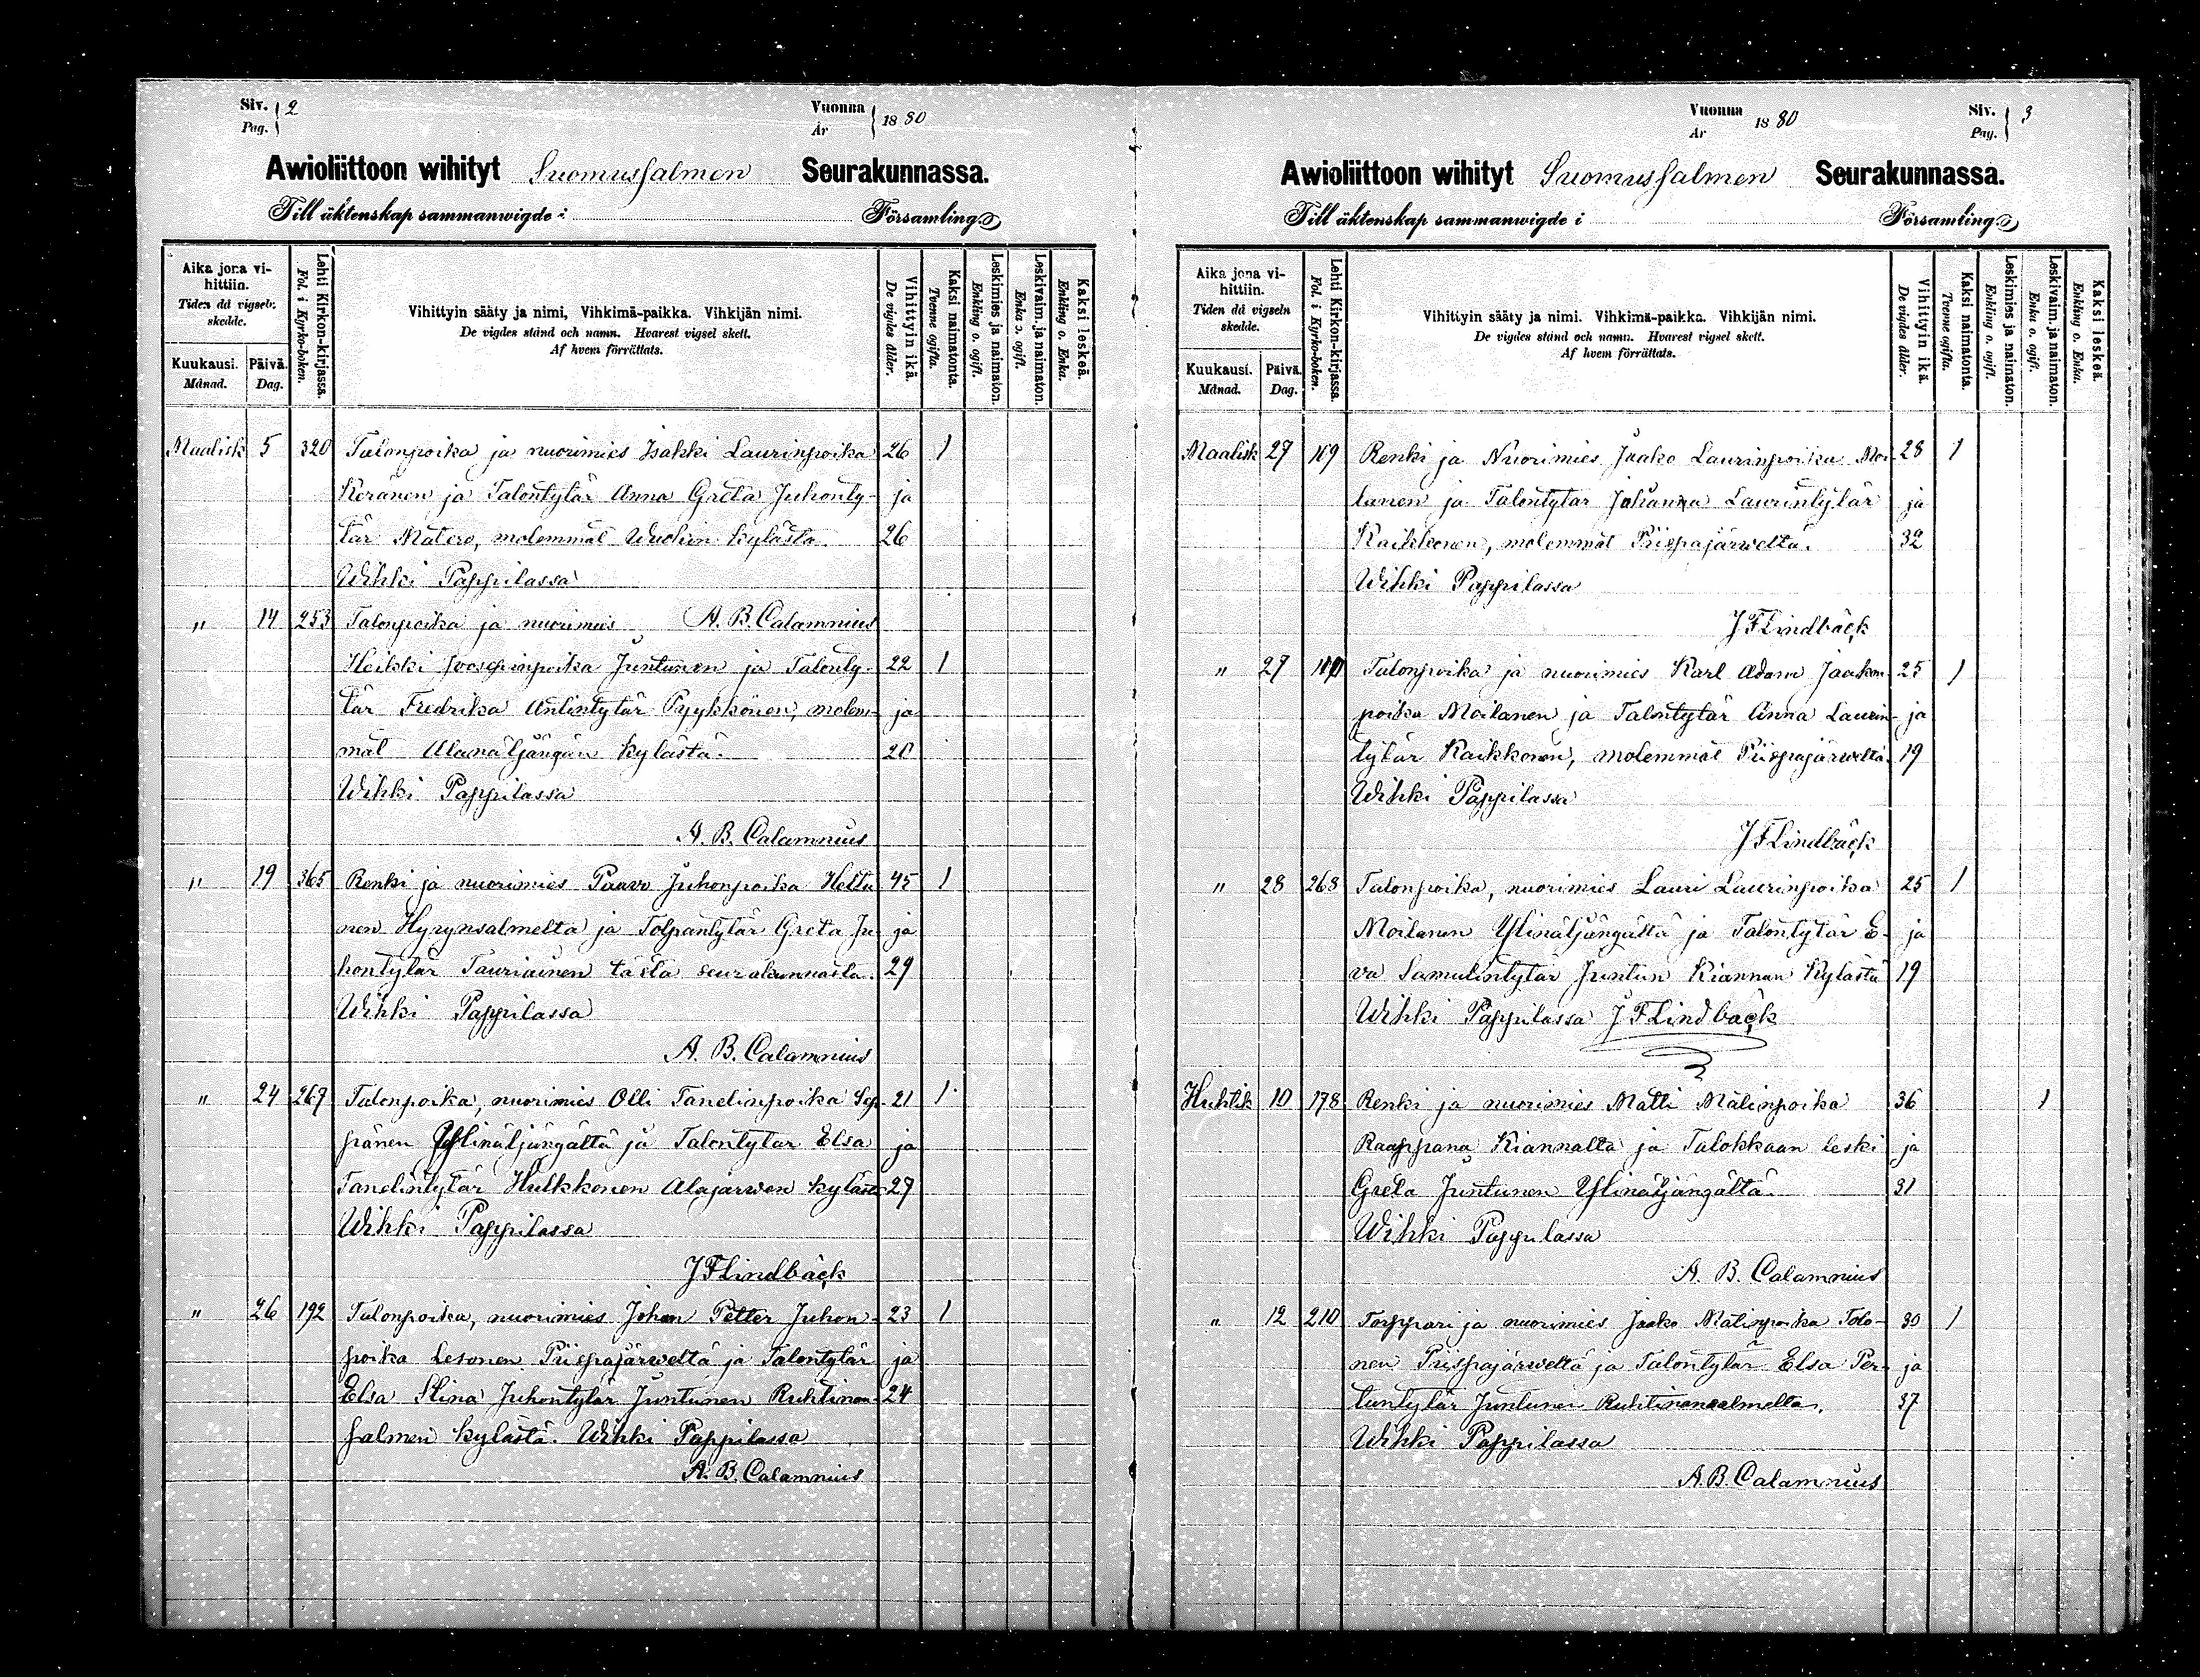 Siv. 2
Pag.
Vuonna
År 1880
Awioliittoon wihityt Suomussalmen Seurakunnassa.
Till äktenskap sammanwigde i Församling
Aika jona vihittiin.
Tiden då vigseln skedde.
Kuukausi. Månad.
Päivä. Dag.
Lehti Kirkon-kirjassa. Fol. i Kyrko-boken.
Vihittyin sääty ja nimi, Vihkimä-paikka. Vihkijän nimi.
De vigdes stånd och namn. Hvarest vigsel skett.
Af hvem förrättats.
Vihittyin ikä. De vigdes ålder.
Kaksi naimatonta. Tvenne ogifta.
Leskimies ja naimaton. Enkling o. ogift.
Leskivaim. ja naimaton. Enka o. ogift.
Kaksi leskeä. Enkling o. Enka.
Maalisk 5 320 Talonpoika ja nuorimies Isakki Laurinpoika 26 1
Keränen ja Talontytär Anna Greta Juhonty- ja
tär Matero, molemmat Wuokin kylästa. 26
Wihki Pappilassa
" 14 253 Talonpoika ja nuorimies A. B. Calamnius
Heikki Joosepinpoika Juntunen ja Talonty- 22 1
tär Fredrika Antintytär Pyykkönen, molem- ja
mat Alanäljängän kylästä. 20
Wihki Pappilassa
A. B. Calamnius
" 19 365 Renki ja nuorimies Paavo Juhonpoika Heltu 45 1
nen Hyrynsalmelta ja Tolpantytär Greta Ju ja
hontytär Tauriainen tästa seurakunnasta. 29
Wihki Pappilassa
A. B. Calamnius
" 24 269 Talonpoika, nuorimies Olli Tanelinpoika Sep- 21 1
pänen Ylinäljängältä ja Talontytar Elsa ja
Tanelintytär Hulkkonen Alajarwen kyläst 27
Wihki Pappilassa
J F Lindbäck
" 26 192 Talonpoika, nuorimies Johan Petter Juhon- 23 1
poika Lesonen Piispajärweltä ja Talontytär ja
Elsa Stina Juhontytär Juntunen Ruhtinan- 24
salmen kylästä. Wihki Pappilassa
A. B. Calamnius
Vuonna
År 1880
Siv. 3
Pag.
Awioliittoon wihityt Suomussalmen Seurakunnassa.
Till äktenskap sammanwigde i Församling
Aika jona vihittiin.
Tiden då vigseln skedde.
Kuukausi. Månad.
Päivä. Dag.
Lehti Kirkon-kirjassa. Fol. i Kyrko-boken.
Vihittyin sääty ja nimi. Vihkimä-paikka. Vihkijän nimi.
De vigdes stånd och namn. Hvarest vigsel skett.
Af hvem förrättats.
Vihittyin ikä. De vigdes ålder.
Kaksi naimatonta. Tvenne ogifta.
Leskimies ja naimaton. Enkling o. ogift.
Leskivaim. ja naimaton. Enka o. ogift.
Kaksi leskeä. Enkling o. Enka.
Maalisk 27 109 Renki ja Nuorimies Jaako Laurinpoika Moi- 28 1
lanen ja Talontytar Johanna Laurintytär ja
Kaikkonen, molemmat Piispajärwelta. 32
Wihki Pappilassa
J F Lindbäck
" 27 Talonpoika ja nuorimies Karl Adam Jaakon- 25 1
poika Moilanen ja Talontytär Anna Laurin- ja
tytär Kaikkonen, molemmat Piispajärweltä. 19
Wihki Pappilassa
J F Lindbäck
" 28 268 Talonpoika, nuorimies Lauri Laurinpoika 25 1
Moilanen Ylinäljängältä ja Talontytär E- ja
va Samulintytär Juntun Kiannan Kylästä 19
Wihki Pappilassa J F Lindbäck
Huhtik 10 178 Renki ja nuorimies Matti Matinpoika 36 1
Raappana Kiannalta ja Talokkaan leski ja
Greta Juntunen Ylinäljängältä. 31
Wihki Pappilassa
A. B. Calamnius
" 12 210 Torppari ja nuorimies Jaako Matinpoika Tolo- 30 1
nen Piispajärweltä ja Talontytär Elsa Per- ja
tuntytär Juntunen Ruhtinansalmelta. 37
Wihki Pappilassa
A. B. Calamnius